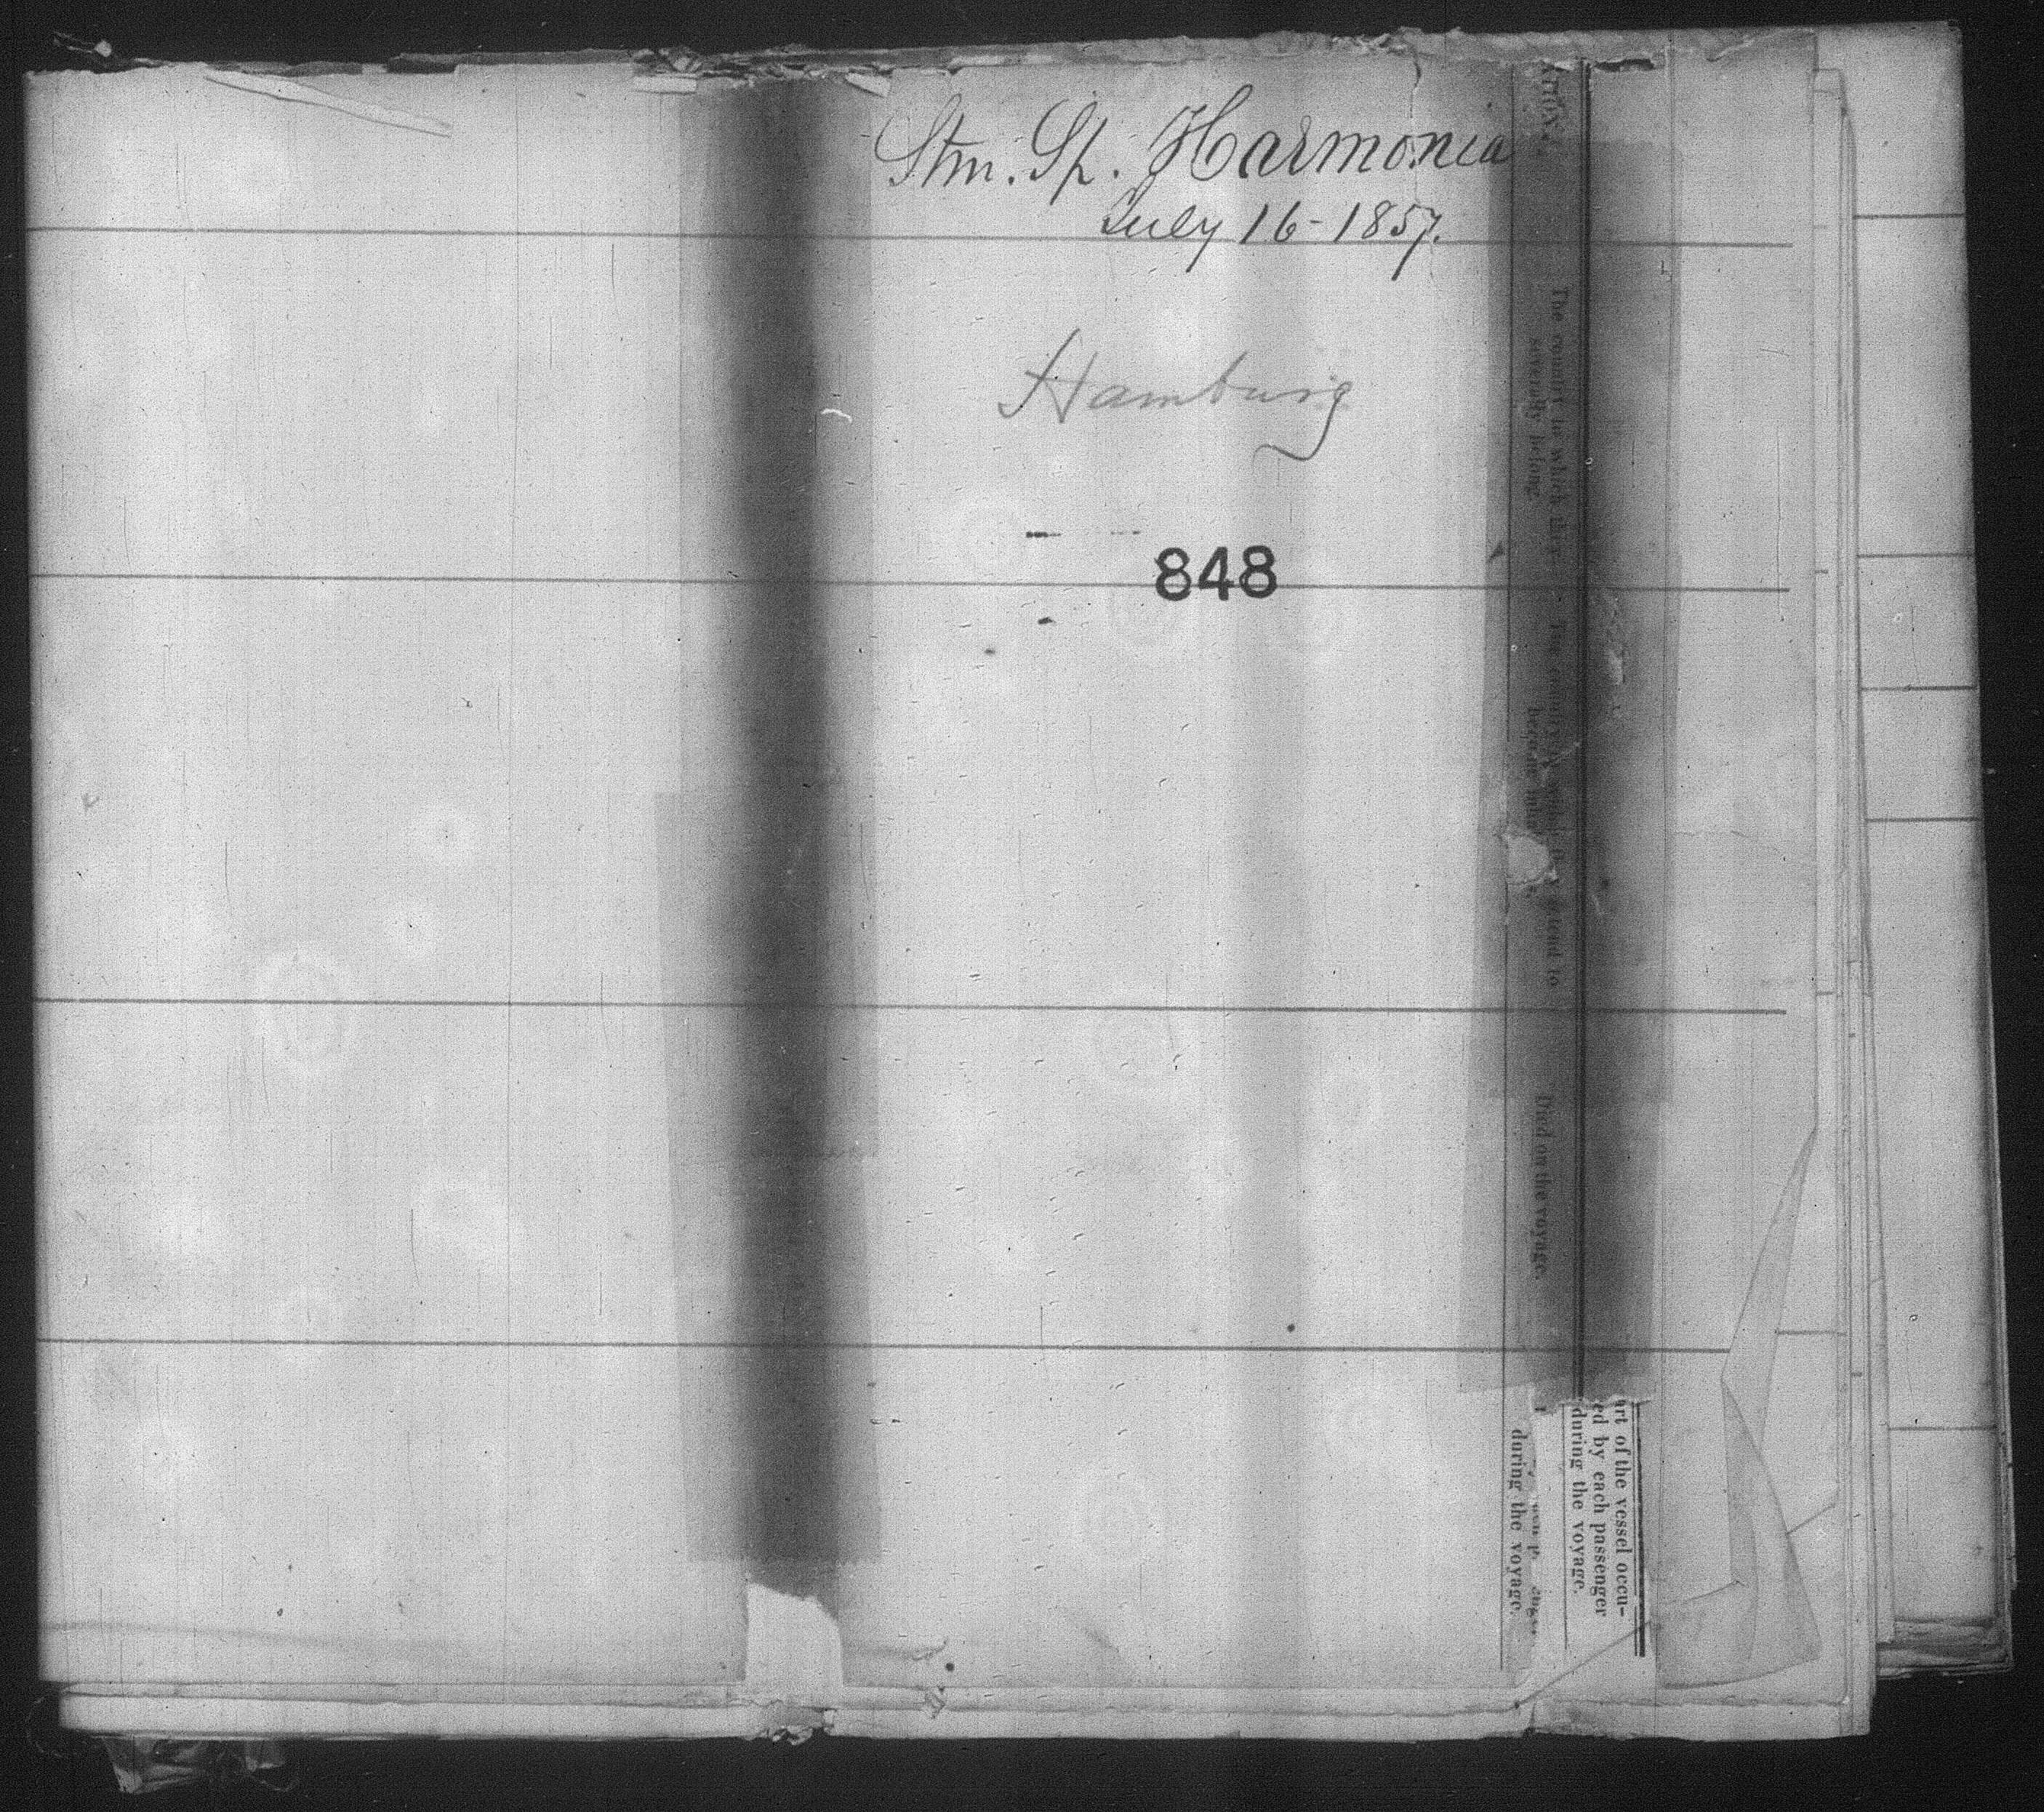 Stm. Sp. Harmonia
July 16 - 1857.
Hamburg
848
The country to which they
severally belong.
The country in which they intend to
become
Died on the voyage.
of the vessel occu-
by each passenger
during the voyage.
during the voyage.